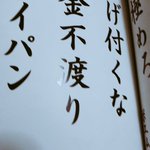 めろ
げ付くな
金不渡り
イパン